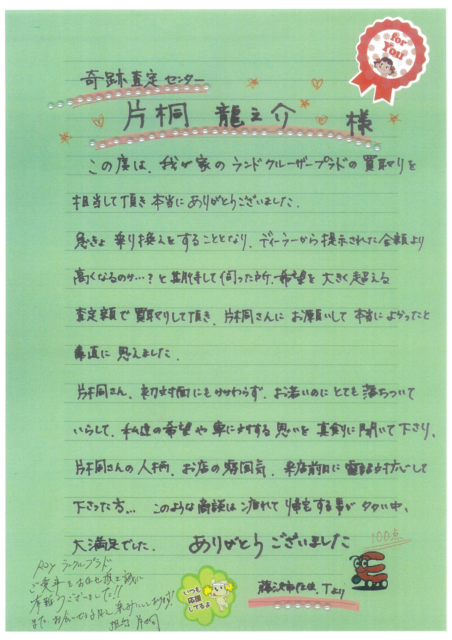 for
You
奇跡査定センター
片桐 龍之介 様
この度は、我が家のランドクルーザープラドの買取りを
担当して頂き本当にありがとうございました。
急きょ乗り換えをすることとなり、ディーラーから提示された金額より
高くなるのか…?と期待して伺った所、希望を大きく超える
査定額で買取りして頂き、片桐さんにお願いして本当によかったと
素直に思えました。
片桐さん、初対面にもかかわらず、お若いのにとても落ちついて
いらして、私達の希望や車に対する思いを真剣に聞いて下さり、
片桐さんの人柄、お店の雰囲気、来店前日に電話対応して
下さった方… このような商談は疲れて帰宅する事が多い中、
大満足でした。 ありがとうございました
100点
いつも
応援
してるよ
藤沢市在住、Tより
ランクルプラド
ご愛車をお任せ頂き誠に
有難うございました!!
また お会いできる日を楽しみにしております!
担当 片桐